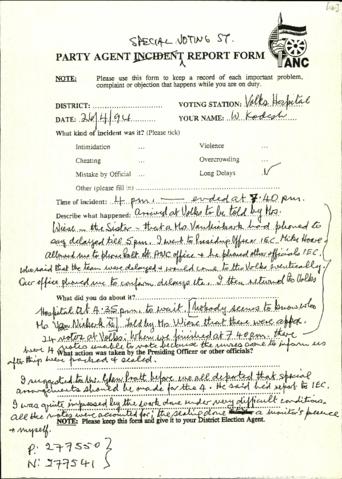 SPECIAL VOTING ST.
PARTY AGENT INCIDENT REPORT FORM
ANC
NOTE: Please use this form to keep a record of each important problem,
complaint or objection that happens while you are on duty.
DISTRICT: VOTING STATION: Volks Hospital
DATE: 26/4/94 YOUR NAME: W. Kodesh
What kind of incident was it? (Please tick)
Intimidation ... Violence ...
Cheating ... Overcrowding ...
Mistake by Official ... Long Delays √
Other (please fill in)
Time of incident: 4 pm. — ended at 7.40 pm.
Describe what happened: Arrived at Volks to be told by Mrs.
Wiese - the Sister - that a Mrs had phoned to
say delayed till 5pm. I went to Presiding Officer IEC. Mike
allowed me to phone ANC office & he phoned other officials IEC.
who said that the team were delayed & would come to the Volks eventually.
Our office phoned me to confirm delays etc. I then returned to Volks
What did you do about it?
Hospital at 4.25pm to wait. [Nobody seems to know who
Ms Van Niekerk is]. Told by Mrs Wiese that there were approx.
24 voters at Volks. When we finished at 7.40 pm. there
were 4 voters unable to vote because the nurses came to inform us
after they were packed & sealed.
What action was taken by the Presiding Officer or other officials?
I suggested to Mr Glen Pratt before we all departed that special
arrangements should be made for the 4. He said he'd report to IEC.
I was quite impressed by the work done under very difficult conditions.
All the votes were accounted for; the sealing done in a monitor's presence
& myself.
NOTE: Please keep this form and give it to your District Election Agent.
P: 277550
N: 277541